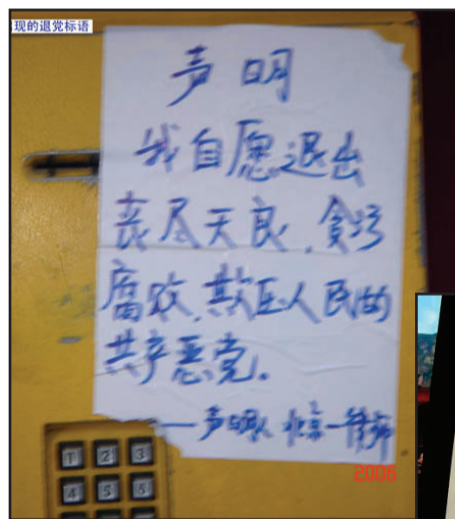 现的退党标语
声明
我自愿退出
丧尽天良，贪污
腐败，欺压人民的
共产恶党。
——声明人 北京一律师
1 2 3
4 5 6
2006